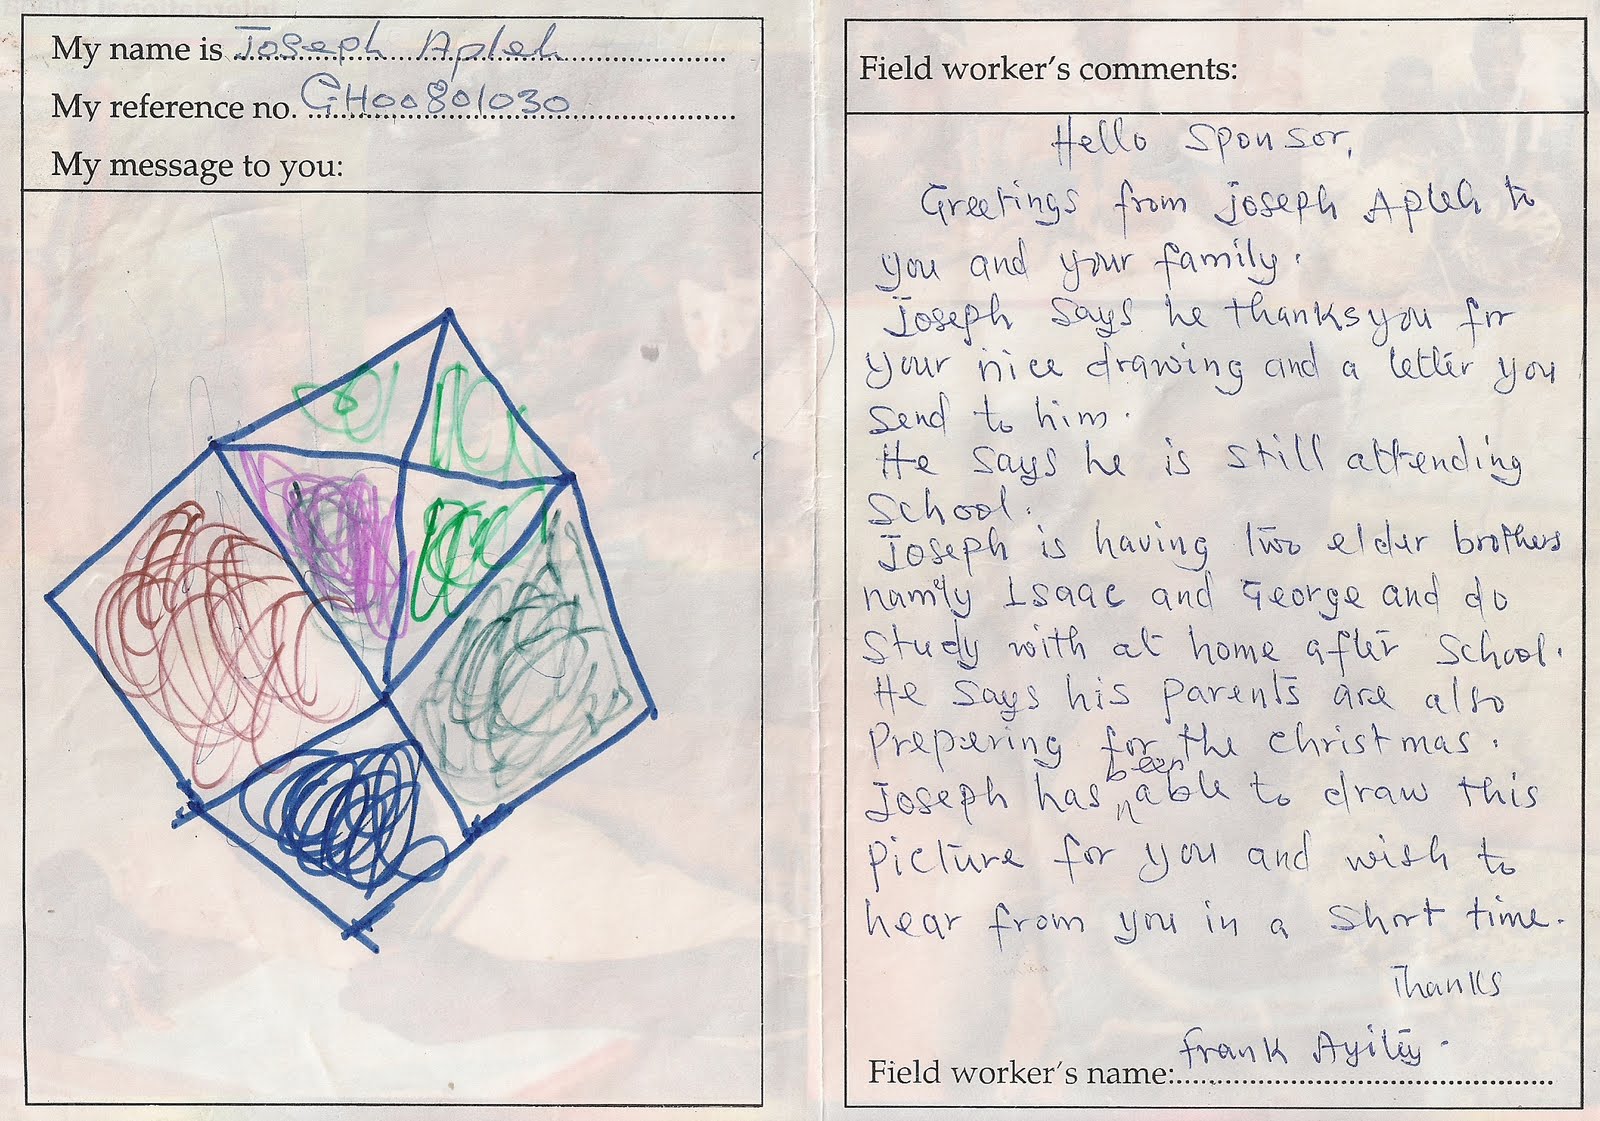 My name is Joseph Apleh
My reference no. GH00801030
My message to you:
Field worker's comments:
Hello Sponsor,
Greetings from Joseph Apleh to
you and your family.
Joseph says he thanks you for
your nice drawing and a letter you
send to him.
He says he is still attending
School.
Joseph is having two elder brothers
namely Isaac and George and do
Study with at home after School.
He says his parents are also
preparing for the christmas.
Joseph has been able to draw this
picture for you and wish to
hear from you in a short time.
Thanks
Frank Ayitey.
Field worker's name: